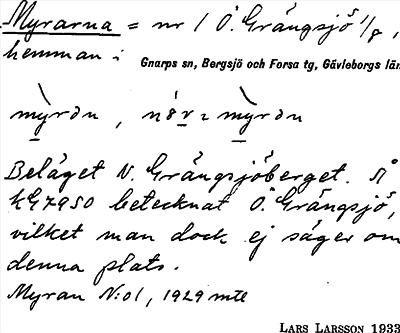 Myrarna = nr 1 Ö. Grängsjö 1/8,
hemman i Gnarps sn, Bergsjö och Forsa tg, Gävleborgs län
myrən, myrən
Beläget N. Grängsjöberget. Å
kG7950 betecknat Ö. Grängsjö,
vilket man dock ej säger om
denna plats.
Myran N:o1, 1929 mtl
LARS LARSSON 1933